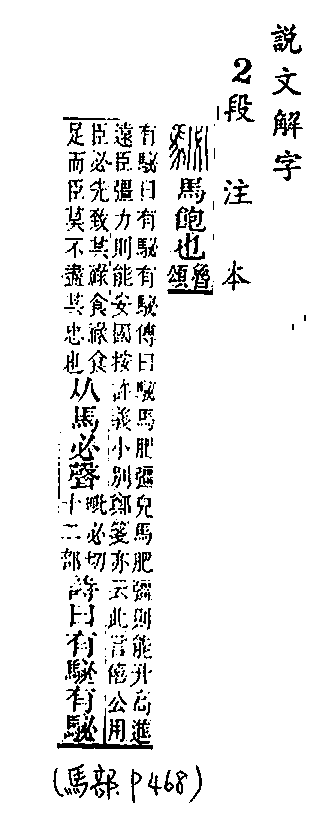 說文解字
2段注本
馬飽也魯
頌
有駜曰有駜有駜傳曰駜馬肥彊皃馬肥彊則能升高進
遠臣彊力則能安國按許義小別鄭箋亦云此言僖公用
臣必先致其祿食祿食
足而臣莫不盡其忠也
从馬必聲
毗必切
十二部
詩曰有駜有駜
(馬部 P468)